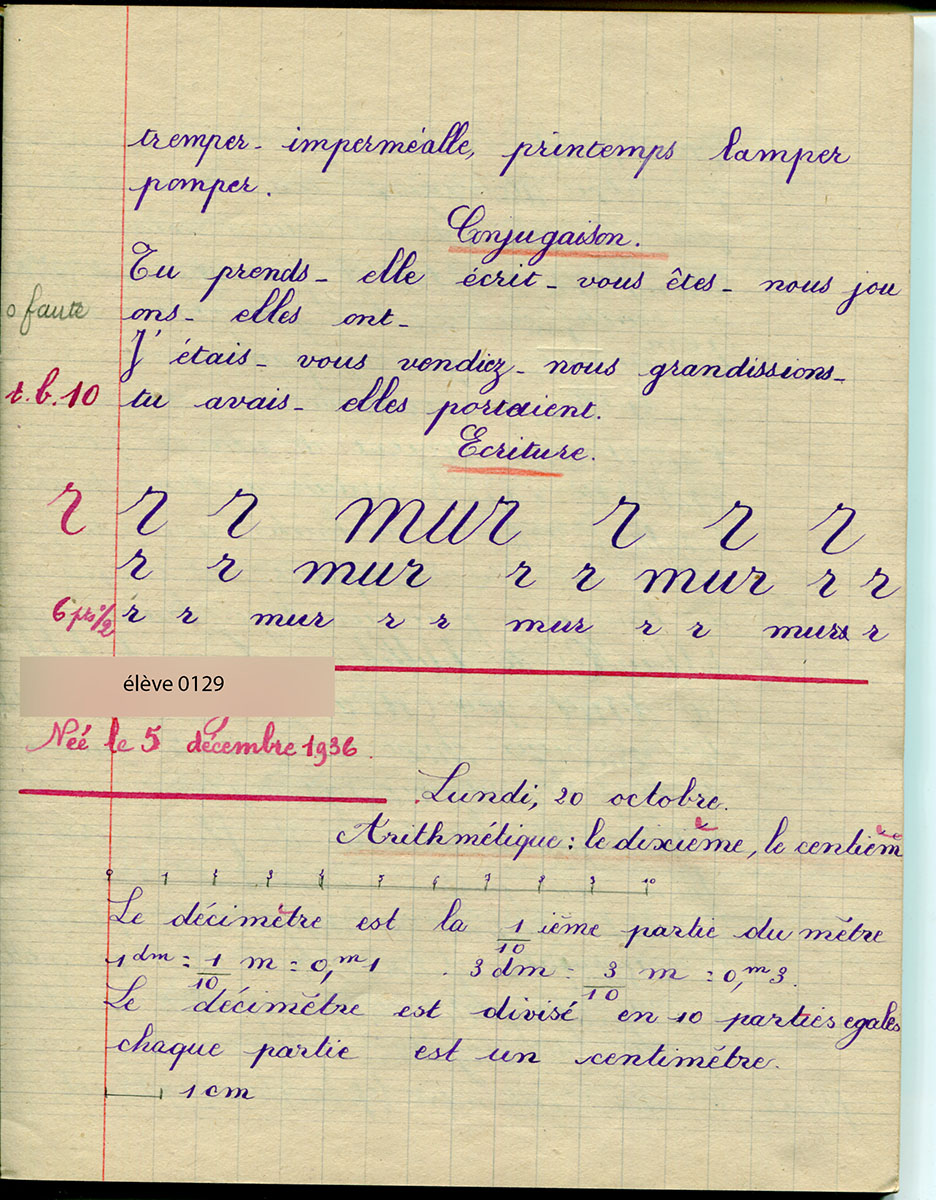 tremper - imperméalle, printemps lamper
pomper.
Conjugaison.
Tu prends - elle écrit - vous êtes - nous jou
0 faute
ons - elles ont -
J'étais - vous vendiez - nous grandissions -
t.b.10
tu avais - elles portaient.
Ecriture.
r r r mur r r r
r r mur r r mur r r
6 pts 1/2 r r mur r r mur r r mur r
élève 0129
Née le 5 décembre 1936.
Lundi, 20 octobre.
Arithmétique : le dixième, le centièm
0 1 2 3 4 5 6 7 8 9 10
Le décimètre est la 1/10 ième partie du mètre
1 dm = 1/10 m = 0,m1 . 3 dm = 3/10 m = 0,m3.
Le décimètre est divisé en 10 parties egales
chaque partie est un centimètre.
1 cm